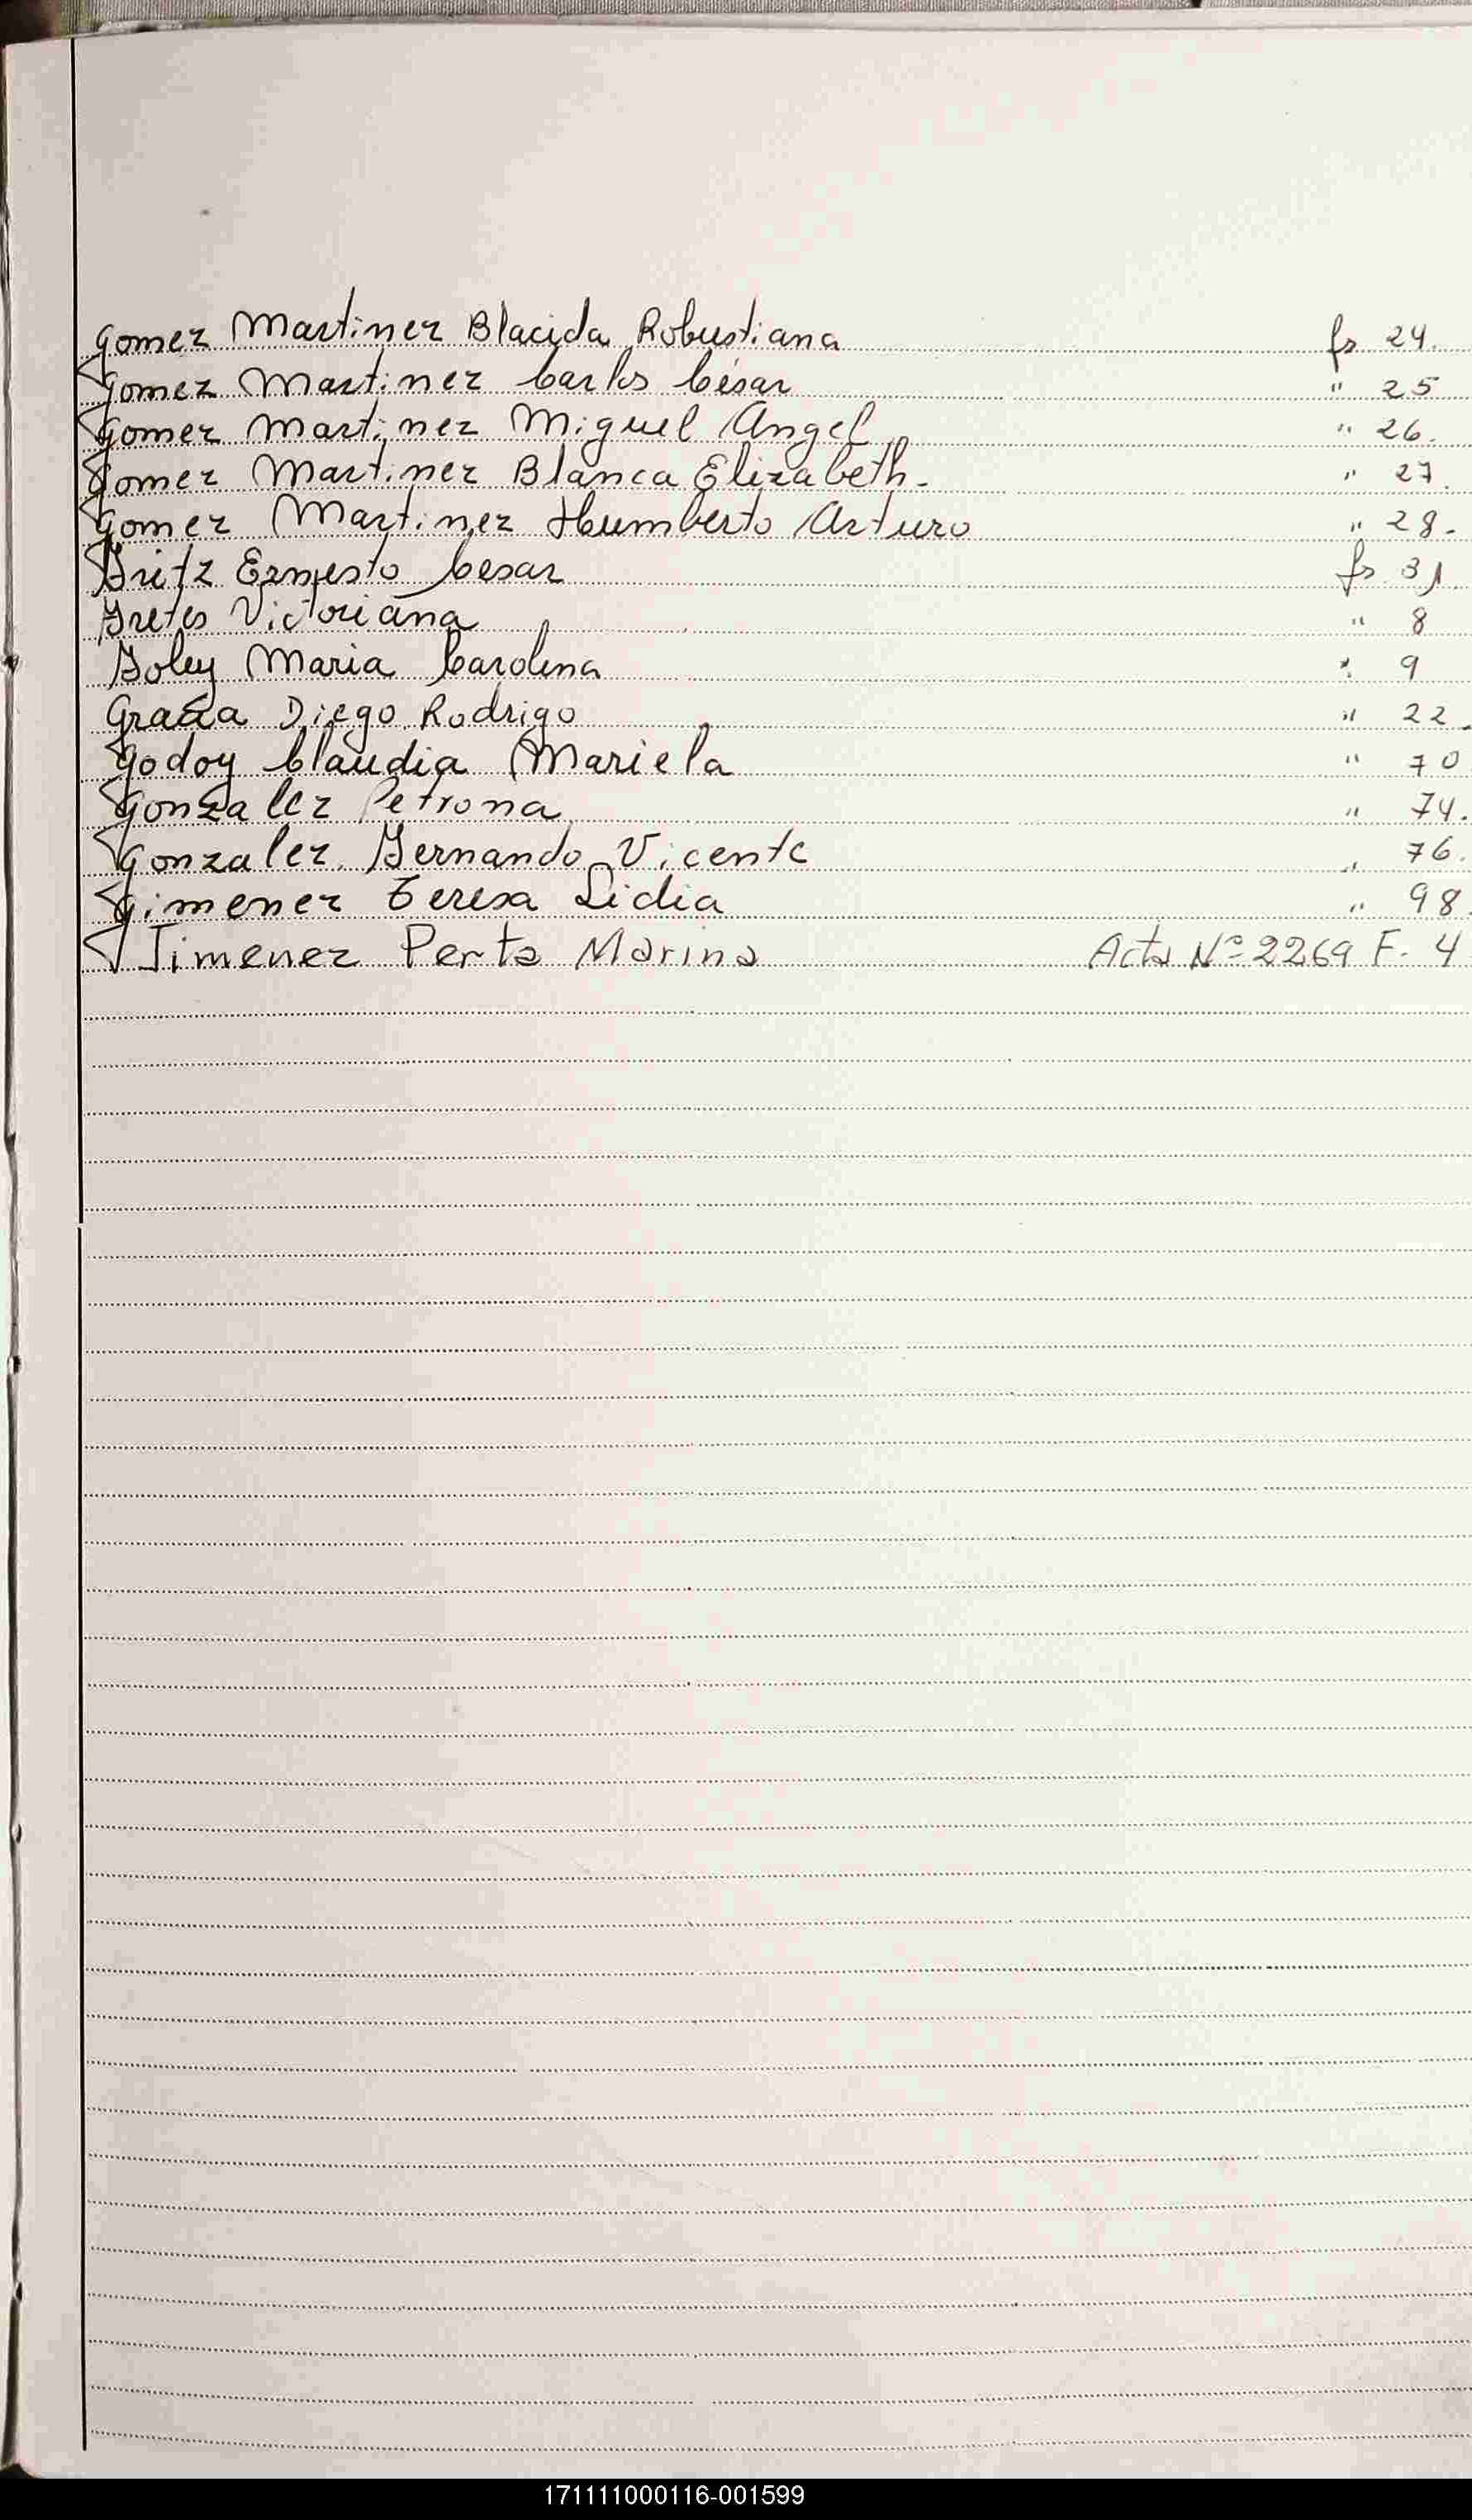 Gomez Martinez Blacida Robustiana fs 24.
Gomez Martinez Carlos César " 25
Gomez Martinez Miguel Angel " 26.
Gomez Martinez Blanca Elizabeth. " 27.
Gomez Martinez Humberto Arturo " 28.
Ernesto Cesar fs 31.
Victoriana " 8
Maria Carolina " 9
Diego Rodrigo " 22.
Godoy Claudia Mariela " 70
Gonzalez Petrona " 74.
Gonzalez Vicente " 76.
Gimenez Teresa Lidia " 98
Jimenez Perta Marina Acta Nº 2269 F. 4
171111000116-001599